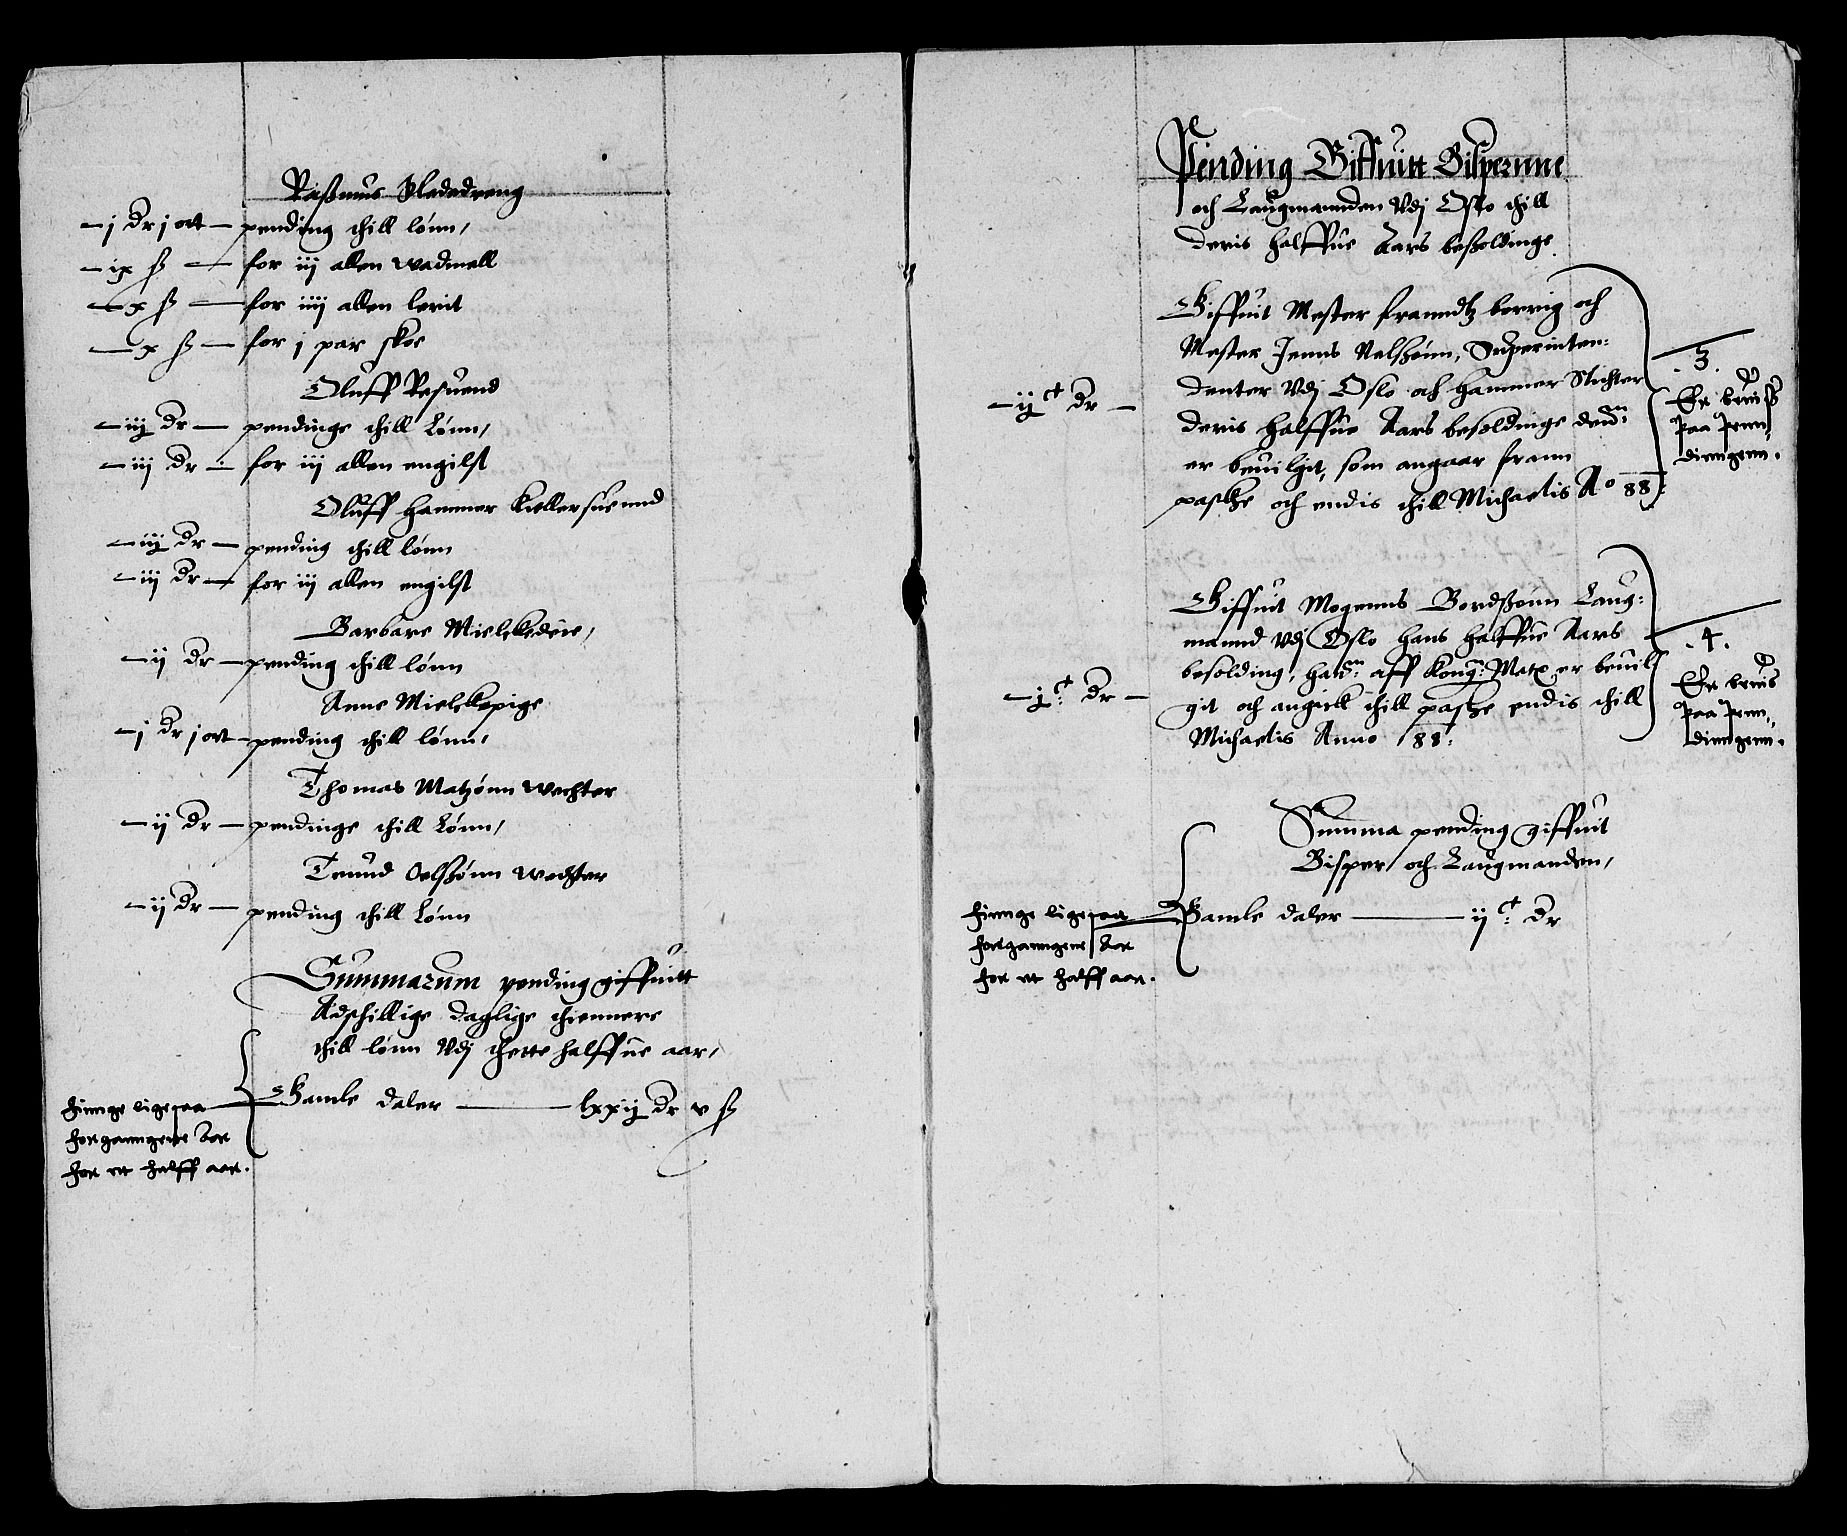 Rasmus Stadadreng
– j dr j ort – pending thill lønn,
– ix ß – for iij allen wadmell
– x ß – for iiij allen lerit
– x ß – for j par skoe
Oluff Resuend
– iiij dr – pendinge thill Lønn,
– iij dr – for iij allen engilst
Oluff hammer kiellersuennd
– iiij dr – pending thill lønn
– iij dr – for iij allen engilst
Barbare Mielckedeie,
– ij dr – pending thill lønn
Anne Mielckepige
– j dr j ort – pending thill lønn,
Thomas Matzønn wechter
– ij dr – pendinge thill Lønn,
Trund Oelszønn wechter
– ij dr – pending thill Lønn
Summarum pending giffuitt
Adschillige daglige thiennere
thill lønn Vdj thette halffue aar,
Gamle daler — lxxij dr v ß
finnge ligesaa
forganngene Aar
for et halff aar.
Pending Giffuitt Bispernne
och Laugmannden Vdj Oslo thill
deris halffue Aars besoldinge
– ij c dr –
Giffuit Mester franndtz berrig och
Mester Jenns Nelszønn, Superinten:
denter Vdj Oslo och hammer Stichter
deris halffue Aars besoldinge denn:
er beuilgit, som angaar frann
paaske och endis thill Michaelis Ao 88:
3.
Er beuiß
paa penn,
dinngenn.
– j c dr –
Giffuit Mogenns Bordszønn Laug:
mannd Vdj Oslo hans halffue Aars
besolding, hannm: aff Kong: Matz er beuil
git och angick thill paaske endis thill
Michaelis Anno 88:
.4.
Er beuis
paa penn,,
dinngenn.
Summa pending giffuit
Bisper och Laugmanden,
Gamle daler — ij c dr
finnge ligesaa
forganngene Aar
for et halff aar.